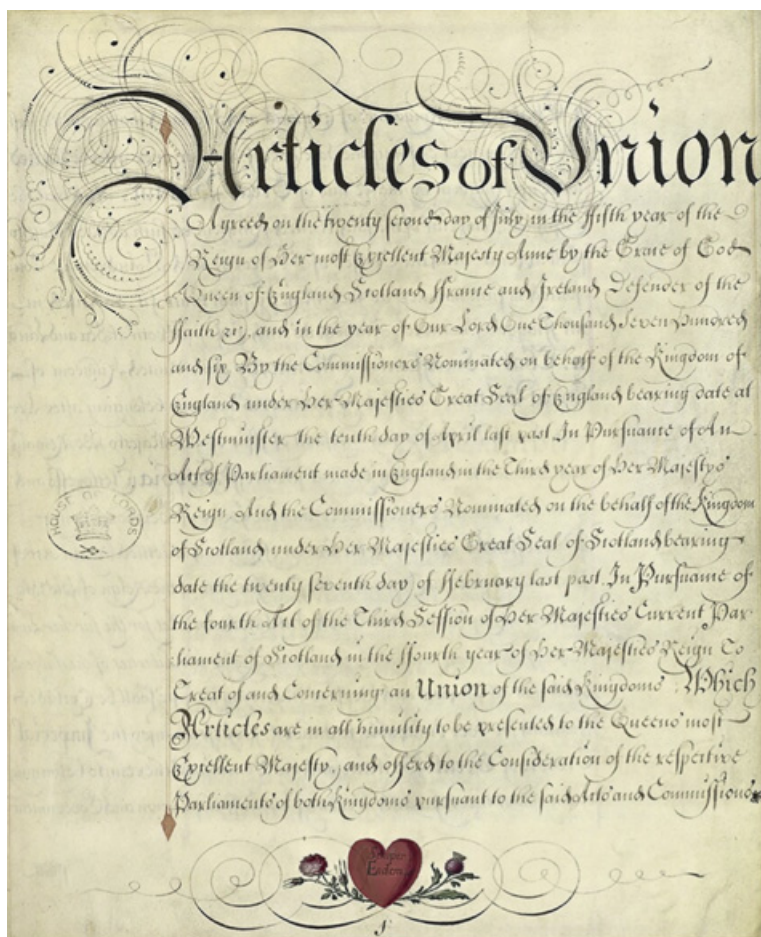 Articles of Union
Agreed on the twenty second day of July, in the ffifth year of the
Reign of Her most Excellent Majesty Anne by the Grace of God
Queen of England Scotland ffrance and Ireland Defender of the
ffaith &c, and in the year of Our Lord One Thousand Seven Hundred
and six By the Commissioners Nominated on behalf of the Kingdom of
England under Her Majesties Great Seal of England bearing date at
Westminster the tenth day of April last past In Pursuance of An
Act of Parliament made in England in the Third year of Her Majestys
Reign And the Commissioners Nominated on the behalf of the Kingdom
of Scotland under Her Majesties Great Seal of Scotland bearing
date the twenty seventh day of ffebruary last past. In Pursuance of
the fourth Act of the Third Session of Her Majesties Current Par
liament of Scotland in the ffourth year of Her Majesties Reign To
Treat of and Concerning an Union of the said Kingdoms Which
Articles are in all humility to be presented to the Queens most
Excellent Majesty, and offerd to the Consideration of the respective
Parliaments of both Kingdoms pursuant to the said Acts and Commissions
HOUSE OF LORDS
Semper
Eadem
1